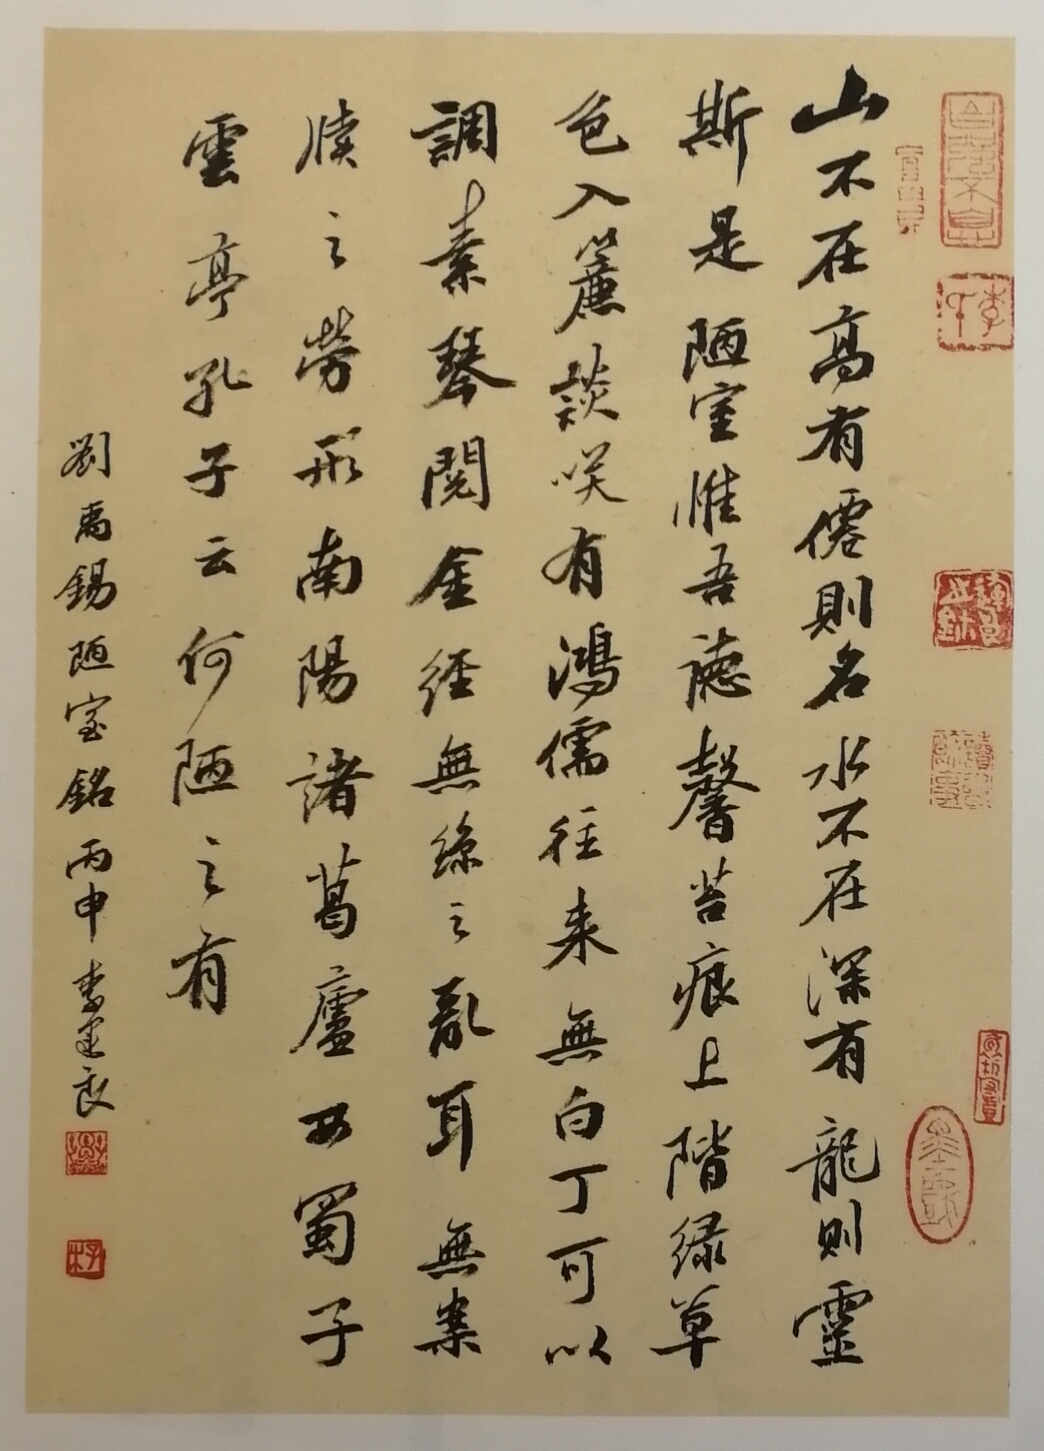 山不在高有僊則名水不在深有龍則靈
斯是陋室惟吾德馨苔痕上階緑草
色入簾談咲有鴻儒往来無白丁可以
調素琴閲金經無絲之亂耳無案
牘之勞形南陽諸葛廬西蜀子
雲亭孔子云何陋之有
劉禹錫陋室銘丙申李建良
自強不息